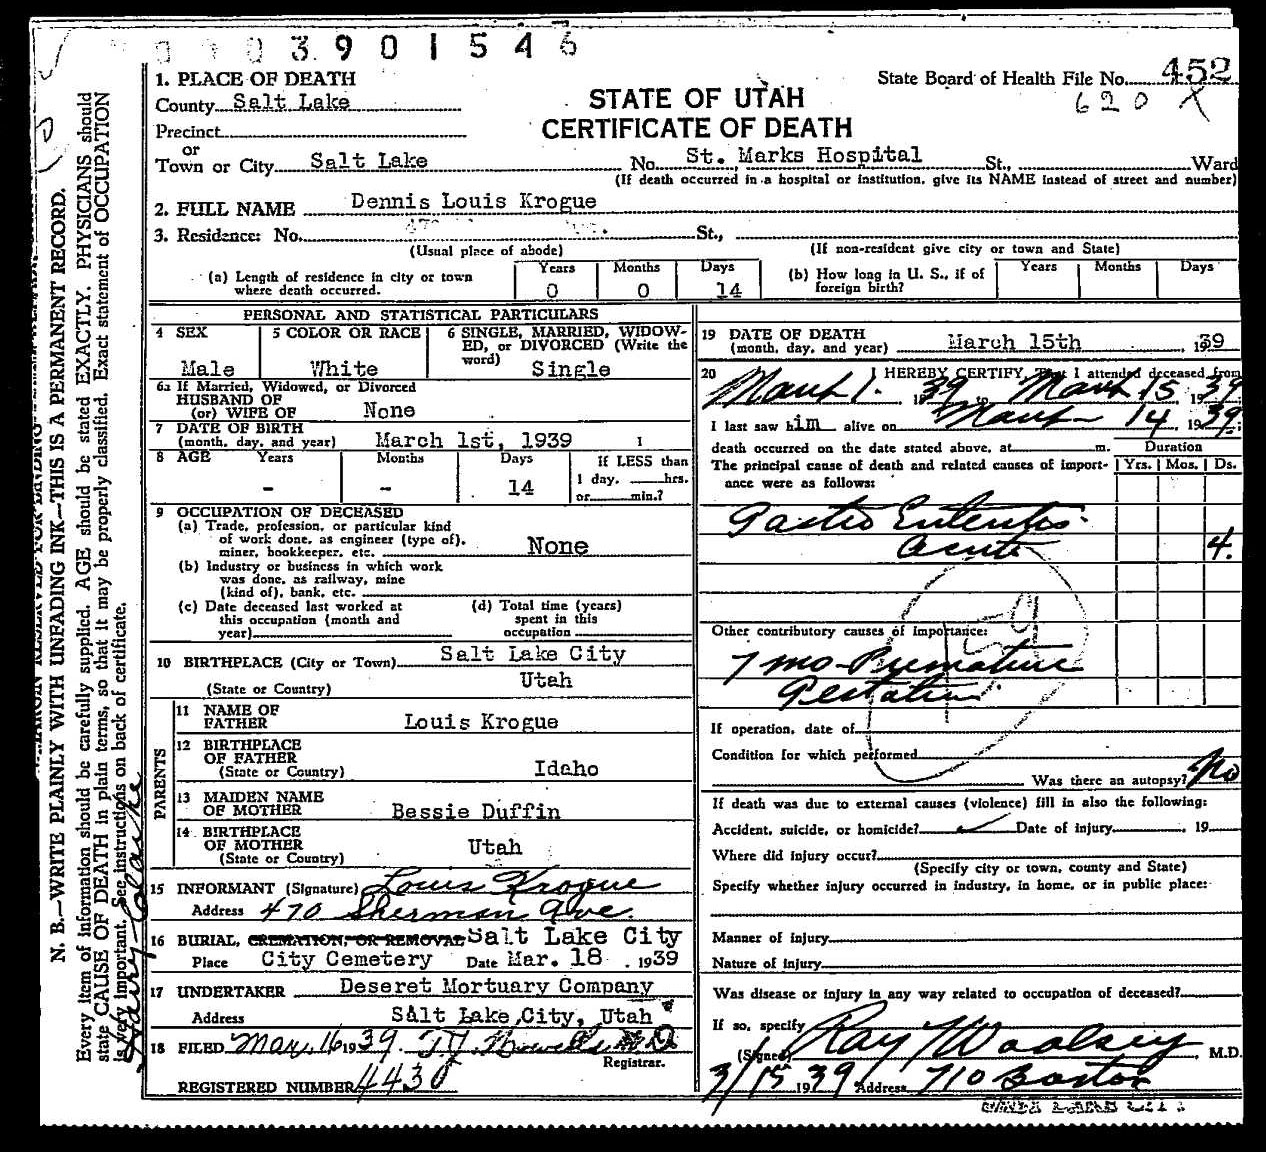 3901546
1. PLACE OF DEATH
State Board of Health File No. 452
620 X
County Salt Lake
STATE OF UTAH
Precinct
CERTIFICATE OF DEATH
or
Town or City Salt Lake No. St. Marks Hospital St., Ward
(If death occurred in a hospital or institution, give its NAME instead of street and number)
2. FULL NAME Dennis Louis Krogue
3. Residence: No. St.,
(Usual place of abode) (If non-resident give city or town and State)
(a) Length of residence in city or town where death occurred. Years 0 Months 0 Days 14
(b) How long in U. S., if of foreign birth? Years Months Days
PERSONAL AND STATISTICAL PARTICULARS
4 SEX Male
5 COLOR OR RACE White
6 SINGLE, MARRIED, WIDOWED, or DIVORCED (Write the word) Single
6a If Married, Widowed, or Divorced
HUSBAND OF
(or) WIFE OF None
7 DATE OF BIRTH
(month, day, and year) March 1st, 1939 1
8 AGE Years - Months - Days 14
If LESS than
1 day, hrs.
or min.?
9 OCCUPATION OF DECEASED
(a) Trade, profession, or particular kind
of work done, as engineer (type of),
miner, bookkeeper, etc. None
(b) Industry or business in which work
was done, as railway, mine
(kind of), bank, etc.
(c) Date deceased last worked at
this occupation (month and
year)
(d) Total time (years)
spent in this
occupation
10 BIRTHPLACE (City or Town) Salt Lake City
(State or Country) Utah
PARENTS
11 NAME OF
FATHER Louis Krogue
12 BIRTHPLACE
OF FATHER
(State or Country) Idaho
13 MAIDEN NAME
OF MOTHER Bessie Duffin
14 BIRTHPLACE
OF MOTHER
(State or Country) Utah
15 INFORMANT (Signature) Louis Krogue
Address 470 Sherman Ave.
16 BURIAL, CREMATION, OR REMOVAL Salt Lake City
Place City Cemetery Date Mar. 18, 1939
17 UNDERTAKER Deseret Mortuary Company
Address Salt Lake City, Utah
18 FILED Mar. 16 1939
Registrar.
REGISTERED NUMBER 4430
19 DATE OF DEATH
(month, day, and year) March 15th, 1939
20 I HEREBY CERTIFY, That I attended deceased from
March 1. 1939 to March 15 1939
I last saw him alive on March 14, 1939;
death occurred on the date stated above, at m.
The principal cause of death and related causes of importance were as follows:
Duration
Yrs. Mos. Ds.
Gastro Enteritis.
acute 4.
Other contributory causes of importance:
7 mo Premature
Gestation.
If operation, date of
Condition for which performed
Was there an autopsy? No
If death was due to external causes (violence) fill in also the following:
Accident, suicide, or homicide? Date of injury , 19
Where did injury occur?
(Specify city or town, county and State)
Specify whether injury occurred in industry, in home, or in public place:
Manner of injury
Nature of injury
Was disease or injury in any way related to occupation of deceased?
If so, specify
(Signed) Ray Woolsey, M.D.
3/15 1939 Address 710 Boston
N. B.—WRITE PLAINLY WITH UNFADING INK—THIS IS A PERMANENT RECORD.
Every item of information should be carefully supplied. AGE should be stated EXACTLY. PHYSICIANS should
state CAUSE OF DEATH in plain terms, so that it may be properly classified. Exact statement of OCCUPATION
is very important. See instructions on back of certificate.